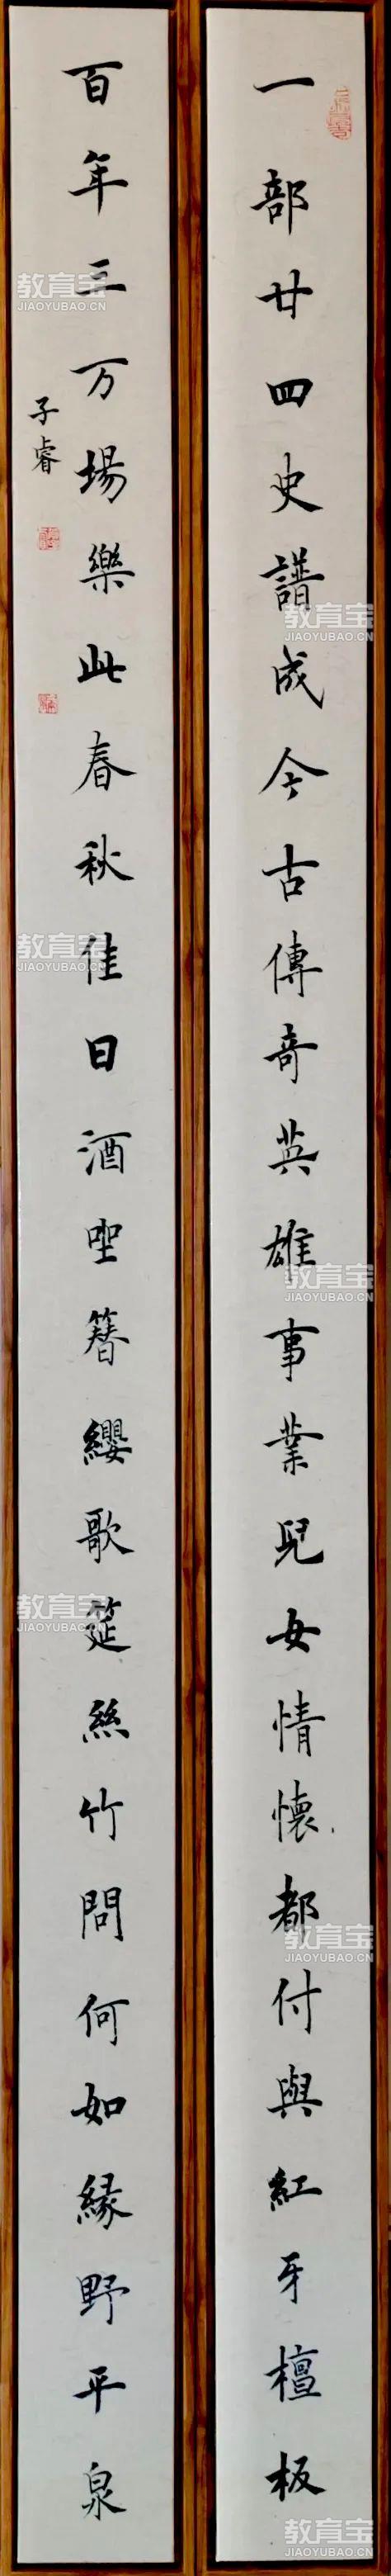 一部廿四史譜成今古傳奇英雄事業兒女情懷都付與紅牙檀板
百年三万場樂此春秋佳日酒聖簪纓歌筵絲竹問何如緣野平泉
子睿
教育宝
JIAOYUBAO.CN
教育宝
JIAOYUBAO.CN
教育宝
JIAOYUBAO.CN
教育宝
JIAOYUBAO.CN
教育宝
JIAOYUBAO.CN
教育宝
JIAOYUBAO.CN
教育宝
JIAOYUBAO.CN